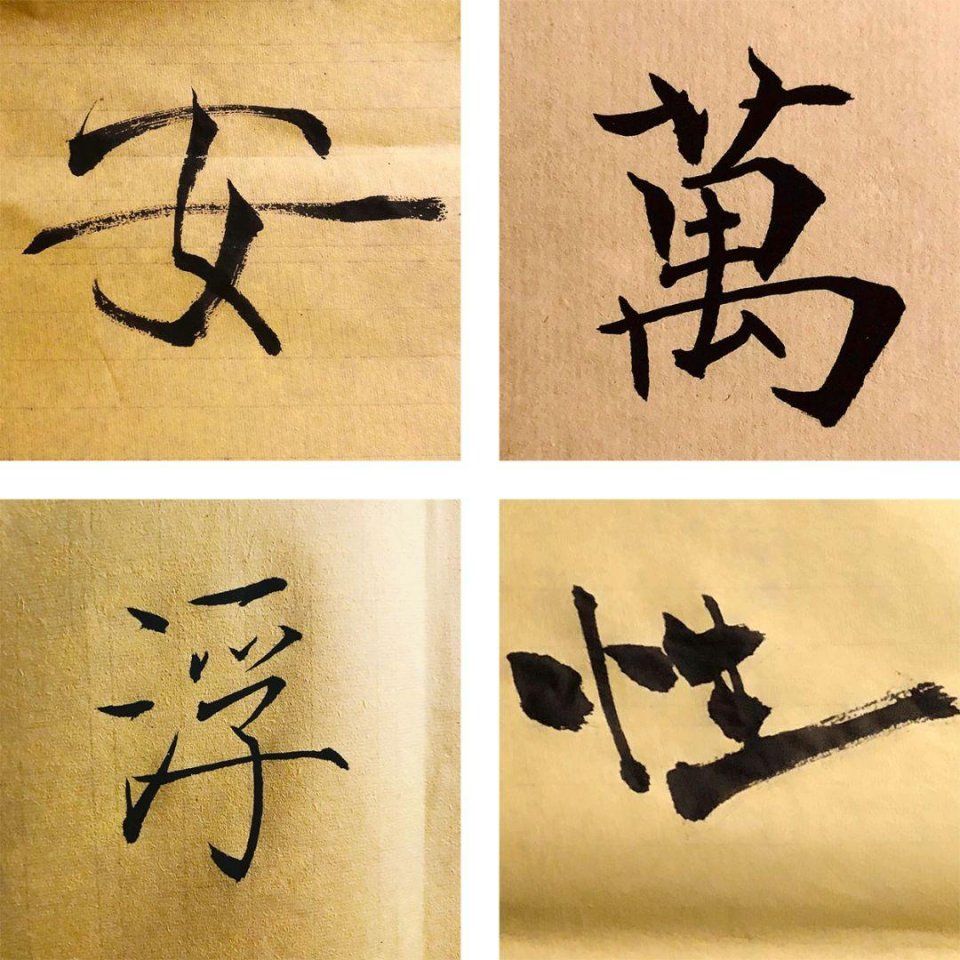 安
萬
浮
性